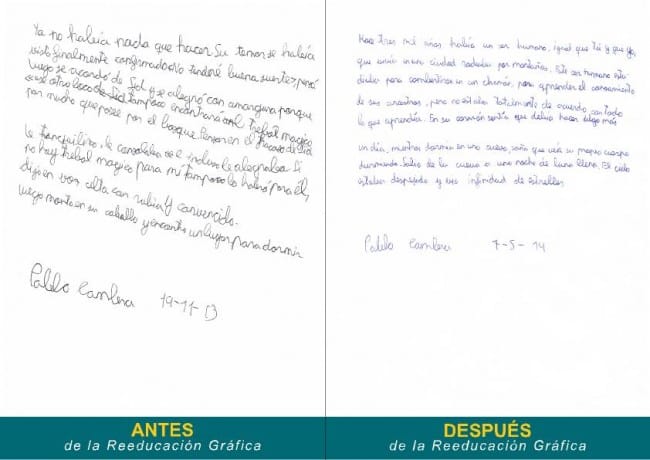 Ya no habría nada que hacer. Su temor se habría
visto finalmente confirmado. No tendré buena suerte, pensó
Luego se acordó de Sid y se alegró con amargura porque
ese otro loco de Sid tampoco encontrará el trébol mágico
por mucho que pasee por el bosque. Pensar en el fracaso de Sid
le tranquilizo, le consolaba e incluso le alegraba. Si
no hay trébol mágico para mí tampoco lo habrá para él,
dijo en voz alta con rabia y convencido.
Luego monto en su caballo y encontro un lugar para dormir
Pablo 19-11-13
Hace tres mil años había un ser humano, igual que tú y que yo,
que vivía en una ciudad rodeada por montañas. Este ser humano esta
diaba para combertirse en un chamán, para aprender el conocimiento
de sus ancestros, pero no estaba totalmente de acuerdo con todo
lo que aprendía. En su corazón sentía que debía haber algo más
Un día, mientras dormía en una cueva, soño que veía su propio cuerpo
durmiendo. Salio de la cueva a una noche de luna llena. El cielo
estaba despejado y vio infinidad de estrellas
Pablo 7-5-14
ANTES
de la Reeducación Gráfica
DESPUÉS
de la Reeducación Gráfica